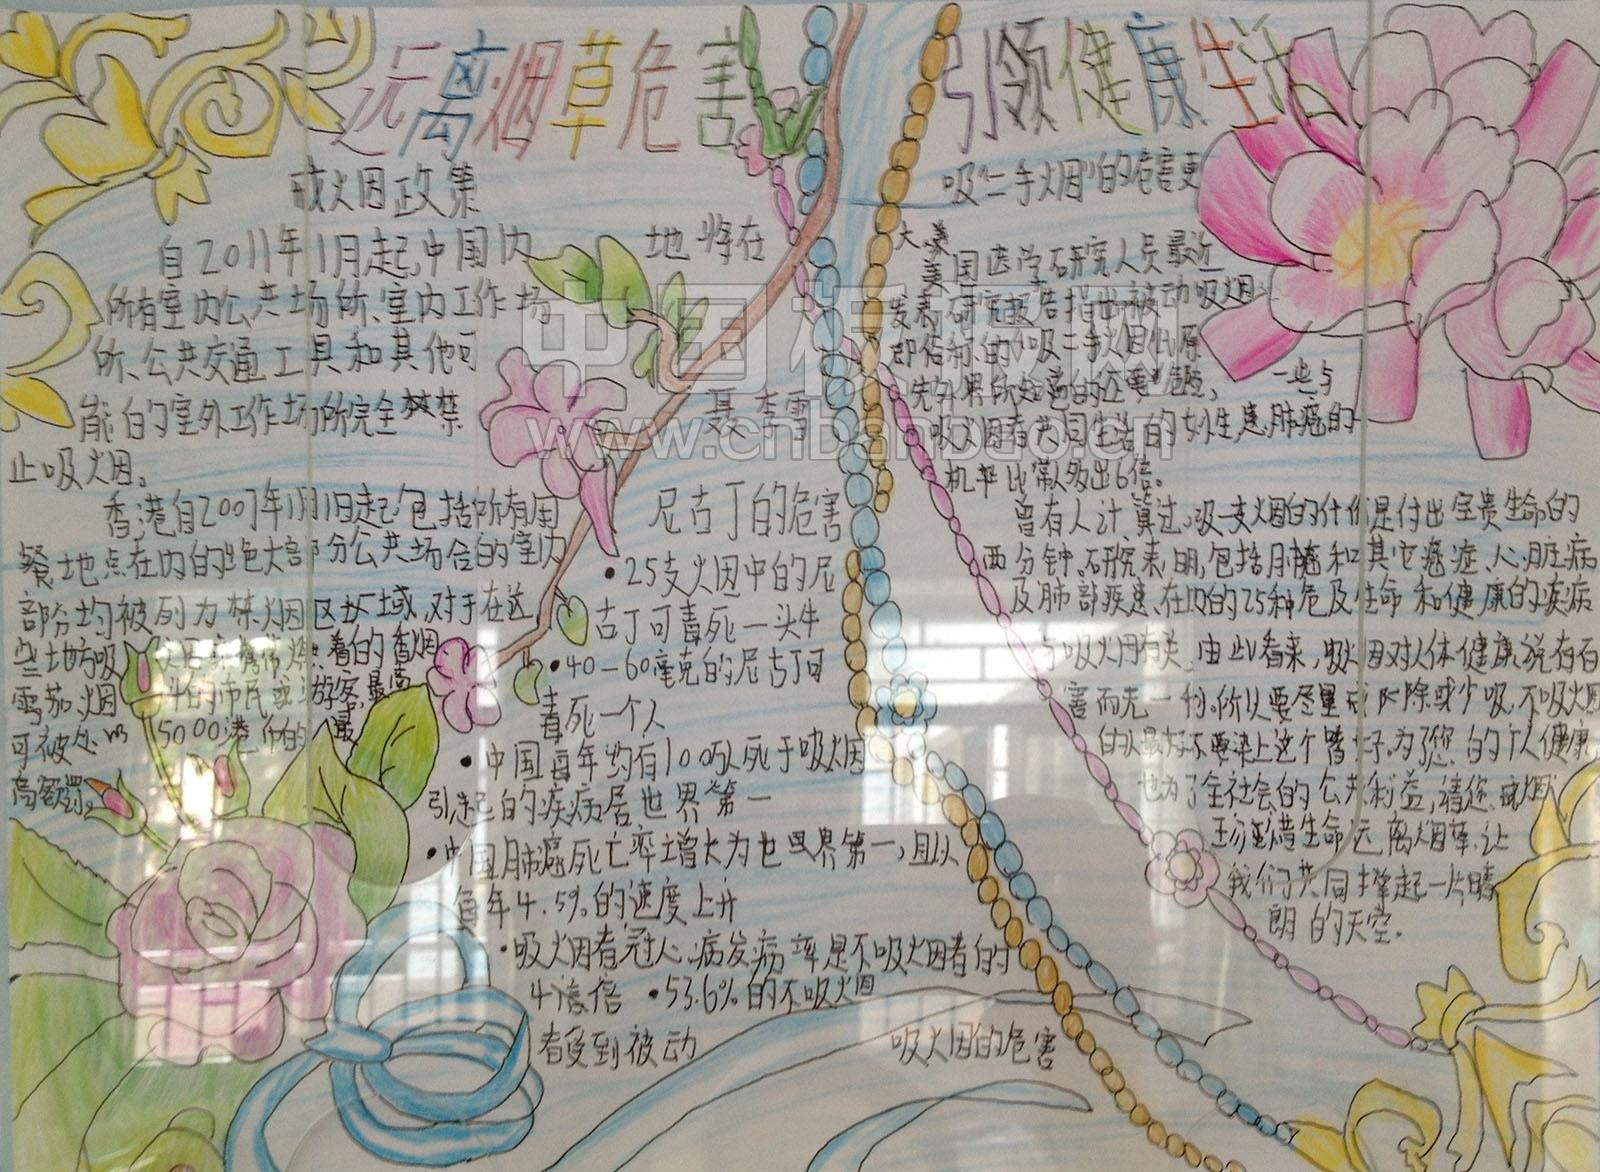 远离烟草危害
引领健康生活
戒烟政策
自2011年1月起,中国内地将在
所有室内公共场所、室内工作场
所、公共交通工具和其他可
能的室外工作场所完全禁
止吸烟。
香港自2007年1月1日起,包括所有用
餐地点在内的绝大部分公共场合的室内
部分均被列为禁烟区区域,对于在这
些地方吸
着的香烟
雪茄、烟斗的市民或游客,最高
可被处
5000港币的最
高额罚。
聂李雪
尼古丁的危害
•25支烟中的尼
古丁可毒死一头牛
•40-60毫克的尼古丁可
毒死一个人
•中国每年约有100万人死于吸烟
引起的疾病居世界第一
•中国肺癌死亡率增长为世界第一,且以
每年4.5%的速度上升
•吸烟者冠心病发病率是不吸烟者的
4倍
•53.6%的不吸烟
者受到被动
吸烟的危害
吸“二手烟”的危害更
大
美国医学研究人员最近
发表研究报告指出被动吸烟
即俗称的吸二手烟比原
先外界所知道的还要危险,一些与
吸烟者共同生活的女性,患肺癌的
机率比常人多出6倍。
曾有人计算过,吸一支烟的代价是付出宝贵生命的
两分钟。研究表明,包括肺癌和其它癌症、心脏病
及肺部疾患在内的25种危及生命和健康的疾病
与吸烟有关,由此看来,吸烟对人体健康说有百
害而无一利。所以要尽量戒除或少吸,不吸烟
的人最好不要染上这个嗜好,为了您的个人健康,
也为了全社会的公共利益,请您戒烟
珍惜生命远离烟草,让
我们共同撑起一片晴
朗的天空.
中国板报网
www.cnbanbao.cn